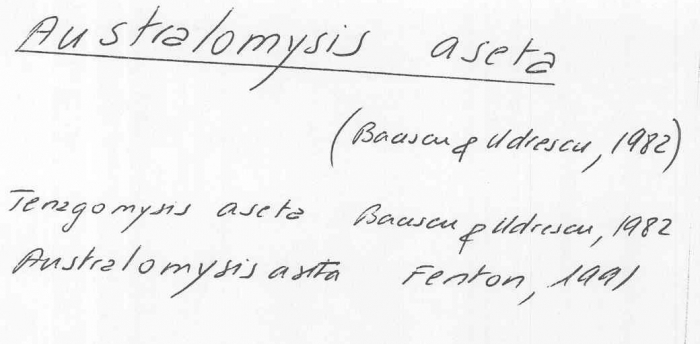 Australomysis aseta
(Bacescu & Udrescu, 1982)
Tenagomysis aseta Bacescu & Udrescu, 1982
Australomysis aseta Fenton, 1991